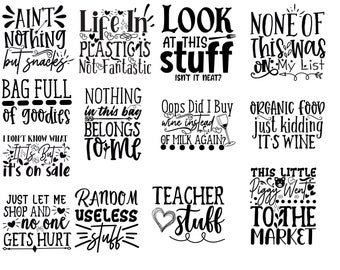 AIN'T
NOTHING
but snacks
Life In
PLASTIC IS
Not Fantastic
LOOK
AT THIS
stuff
ISN'T IT NEAT?
NONE OF
This WAS
ON My List
BAG FULL
of goodies
NOTHING
in this bag
BELONGS
TO ME
Oops Did I Buy
wine instead
OF MILK AGAIN?
ORGANIC FOOD
just kidding
IT'S WINE
I DON'T KNOW WHAT
It Is But
it's on sale
JUST LET ME
SHOP AND no one
GETS HURT
RANDOM
USELESS
stuff
TEACHER
stuff
THIS LITTLE
Piggy Went
TO THE
MARKET